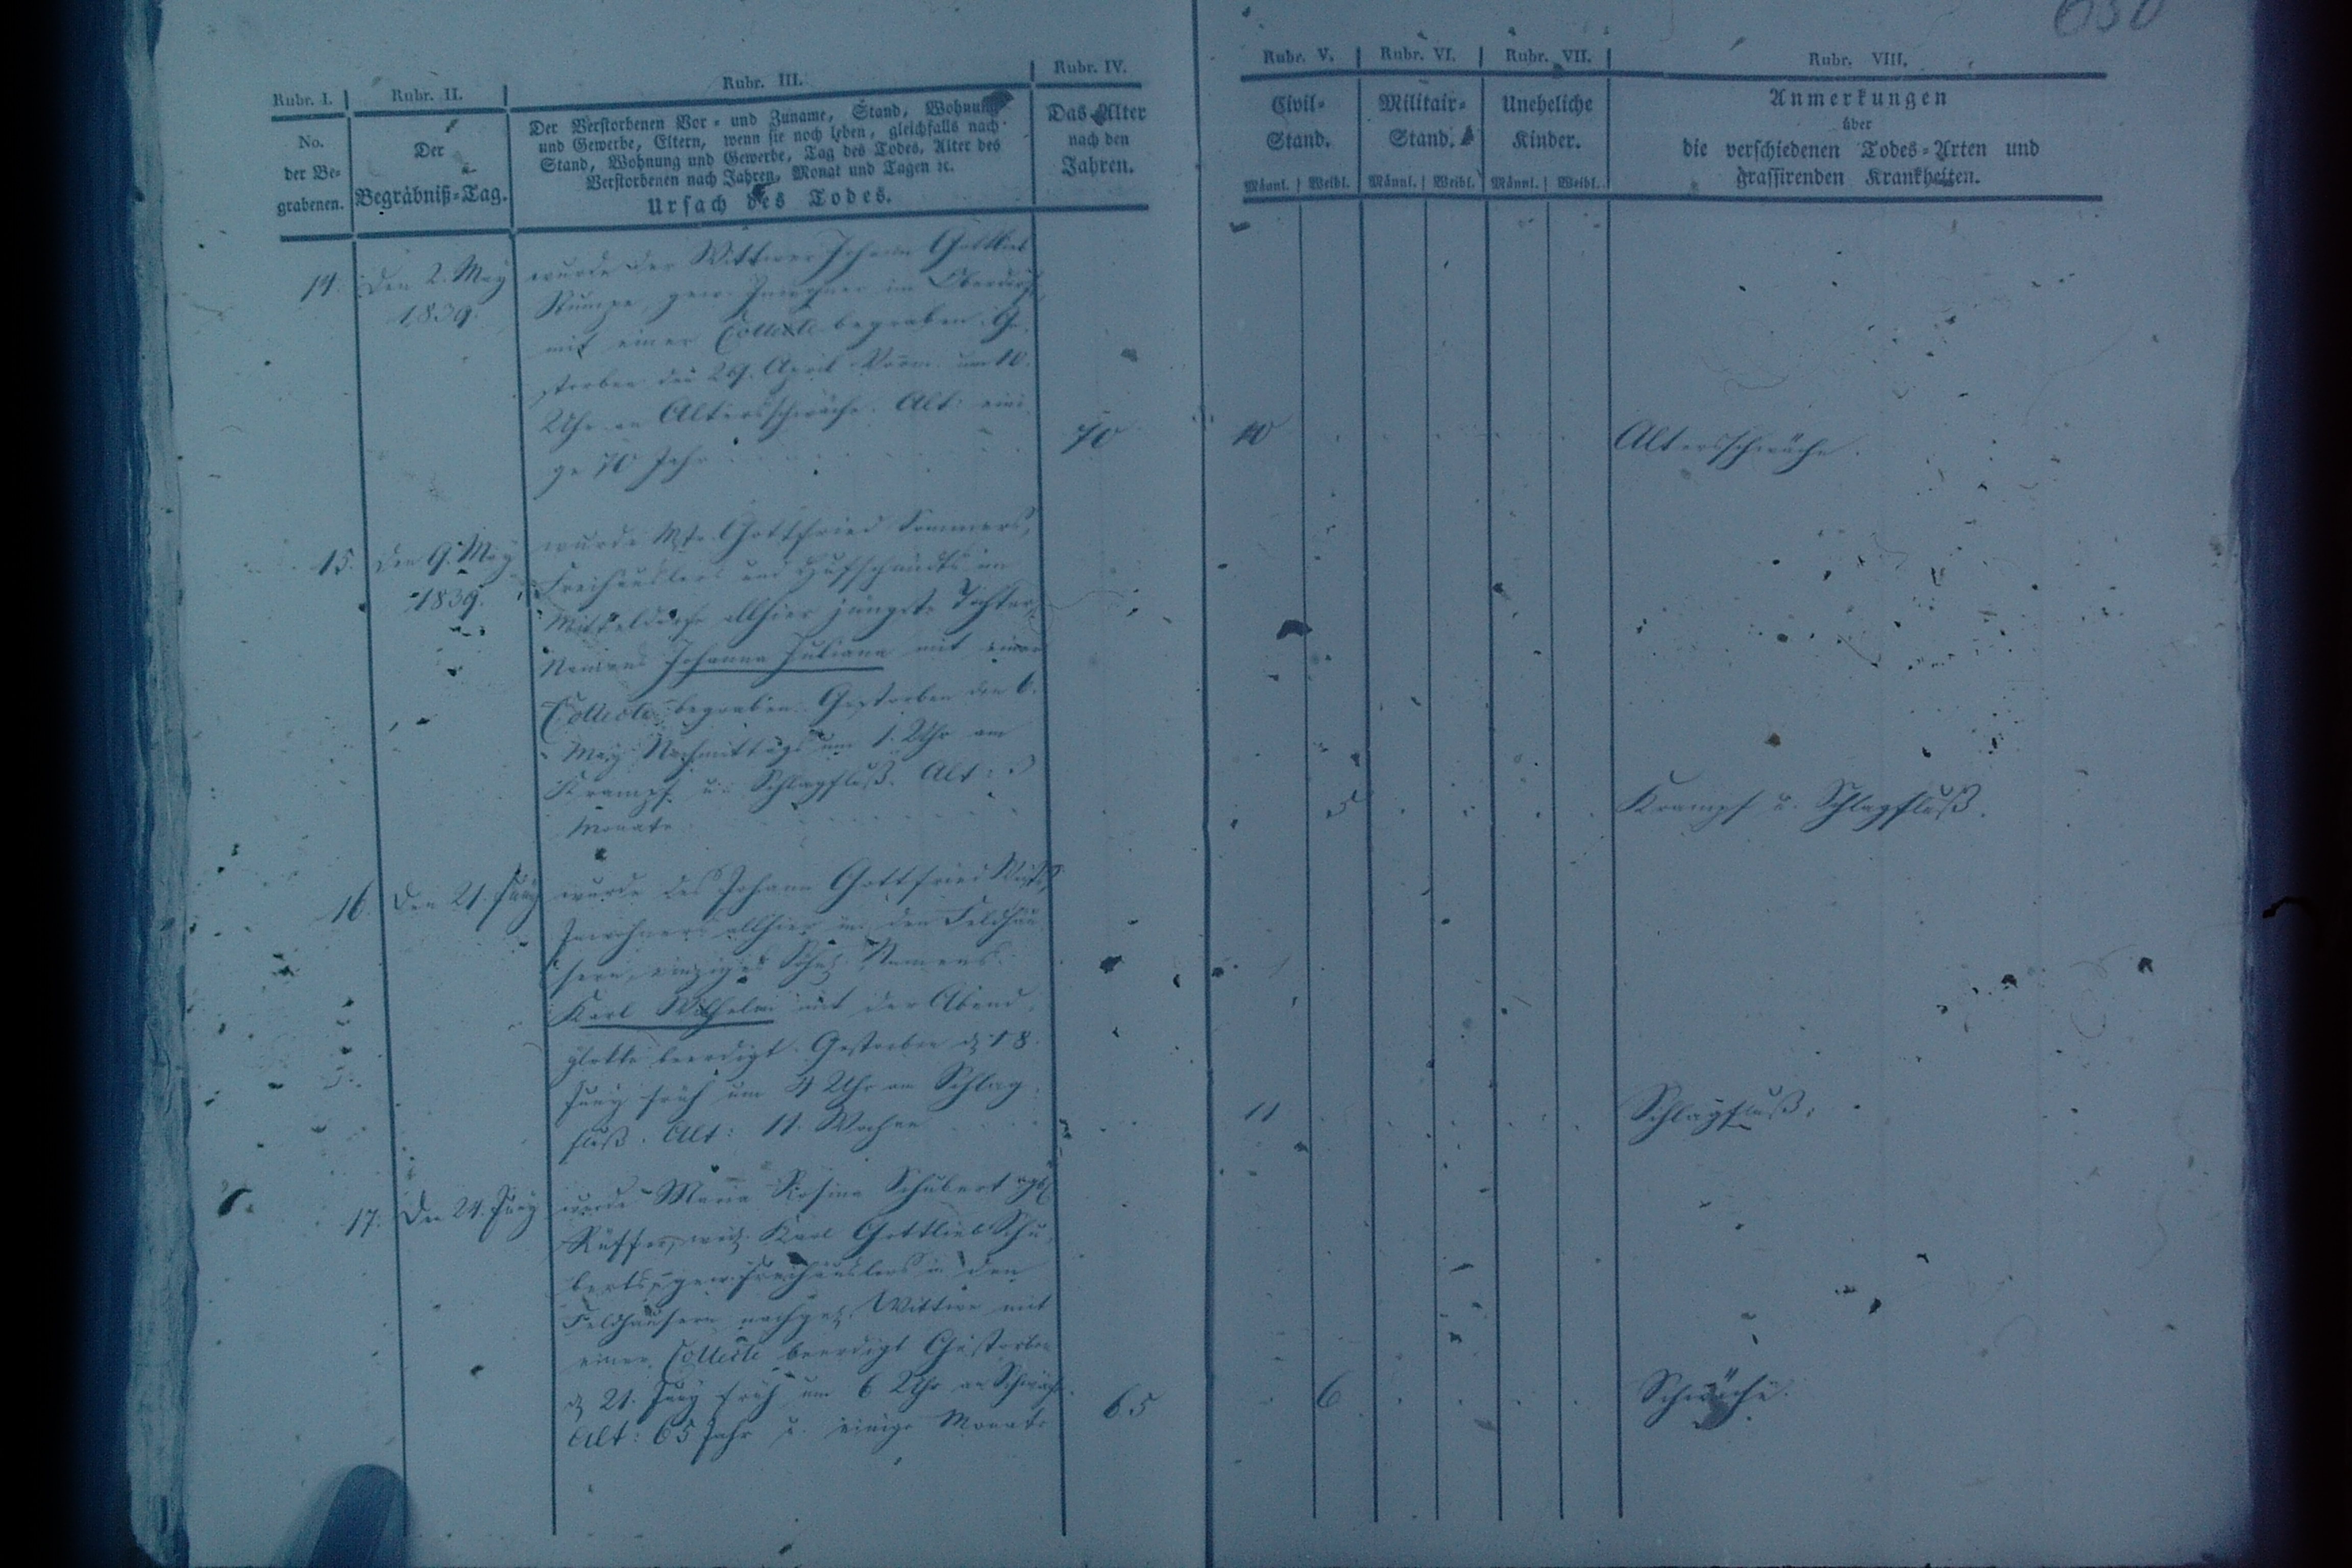 630
Rubr. I.
No.
der Be-
grabenen.
Rubr. II.
Der
Begräbniß-Tag.
Rubr. III.
Der Verstorbenen Vor- und Zuname, Stand, Wohnung
und Gewerbe, Eltern, wenn sie noch leben, gleichfalls nach
Stand, Wohnung und Gewerbe, Tag des Todes, Alter des
Verstorbenen nach Jahren, Monat und Tagen ꝛc.
Ursach des Todes.
Rubr. IV.
Das Alter
nach den
Jahren.
Rubr. V.
Civil-
Stand.
Männl. Weibl.
Rubr. VI.
Militair-
Stand.
Männl. Weibl.
Rubr. VII.
Uneheliche
Kinder.
Männl. Weibl.
Rubr. VIII.
Anmerkungen
über
die verschiedenen Todes-Arten und
grassirenden Krankheiten.
14.
Den 2. May
1839.
wurde der Wittwer Johann Gottlieb
Rumpe, gew. Inwohner im Oberdorfe,
mit einer Collecte begraben. Ge-
storben den 29. April Vorm. um 10.
Uhr an Altersschwäche. Alt: eini-
ge 70 Jahr
70
10
Altersschwäche.
15.
Den 9. May
1839.
wurde Mstr. Gottfried Sommers,
Freihäuslers und Hufschmidts im
Mitteldorfe allhier jüngste Tochter,
Namens Johanna Juliana mit einer
Collecte begraben. Gestorben den 6.
May Nachmittags um 1. Uhr am
Krampf u. Schlagfluß. Alt: 3
Monate
5
Krampf u. Schlagfluß.
16.
Den 21. Juny
wurde des Johann Gottfried
Inwohners allhier in den Feldhäu-
sern, einziges Söhnl. Namens
Karl Wilhelm mit der Abend-
glocke beerdigt. Gestorben d. 18.
Juny früh um 4 Uhr am Schlag-
fluß. Alt: 11. Wochen
11
Schlagfluß.
17.
Den 24. Juny
wurde Maria Rosina Schubert geb.
Rüffer, weil. Karl Gottlieb Schu-
berts, gew. Freihäuslers in den
Feldhäusern nachgel. Wittwe mit
einer Collecte beerdigt Gestorben
d. 21. Juny früh um 6 Uhr an Schwäche.
Alt: 65 Jahr u. einige Monate
65
6
Schwäche.